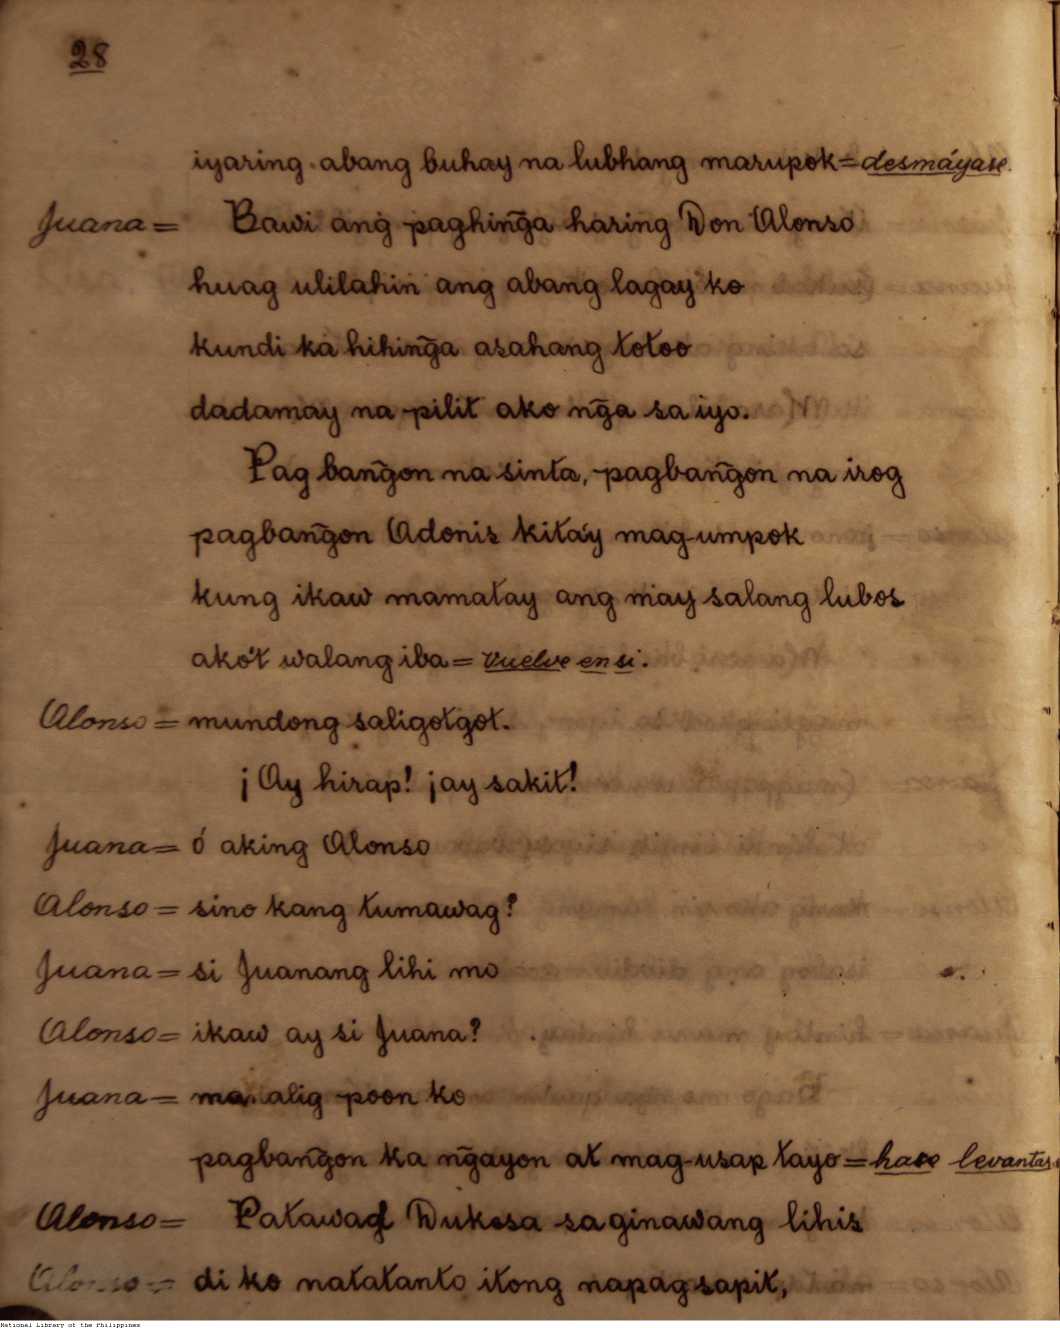 28
iyaring abang buhay na lubhang marupok = desmáyase.
Juana = Bawi ang paghin̄ga haring Don Alonso
huag ulilahin ang abang lagay ko
kundi ka hihin̄ga asahang totoo
dadamay na pilit ako n̄ga sa iyo.
Pag ban̄gon na sinta, pagban̄gon na irog
pagban̄gon Adonis kita'y mag-umpok
kung ikaw mamatay ang may salang lubos
ako't walang iba = vuelve en si.
Alonso = mundong saligotgot.
¡Ay hirap! ¡ay sakit!
Juana = ó aking Alonso
Alonso = sino kang tumawag?
Juana = si Juanang lihi mo
Alonso = ikaw ay si Juana?
Juana = ma alig poon ko
pagban̄gon ka n̄gayon at mag-usap tayo = levantar
Alonso = Patawad Dukesa sa ginawang lihis
Alonso = di ko natatanto itong napagsapit,
National Library of the Philippines